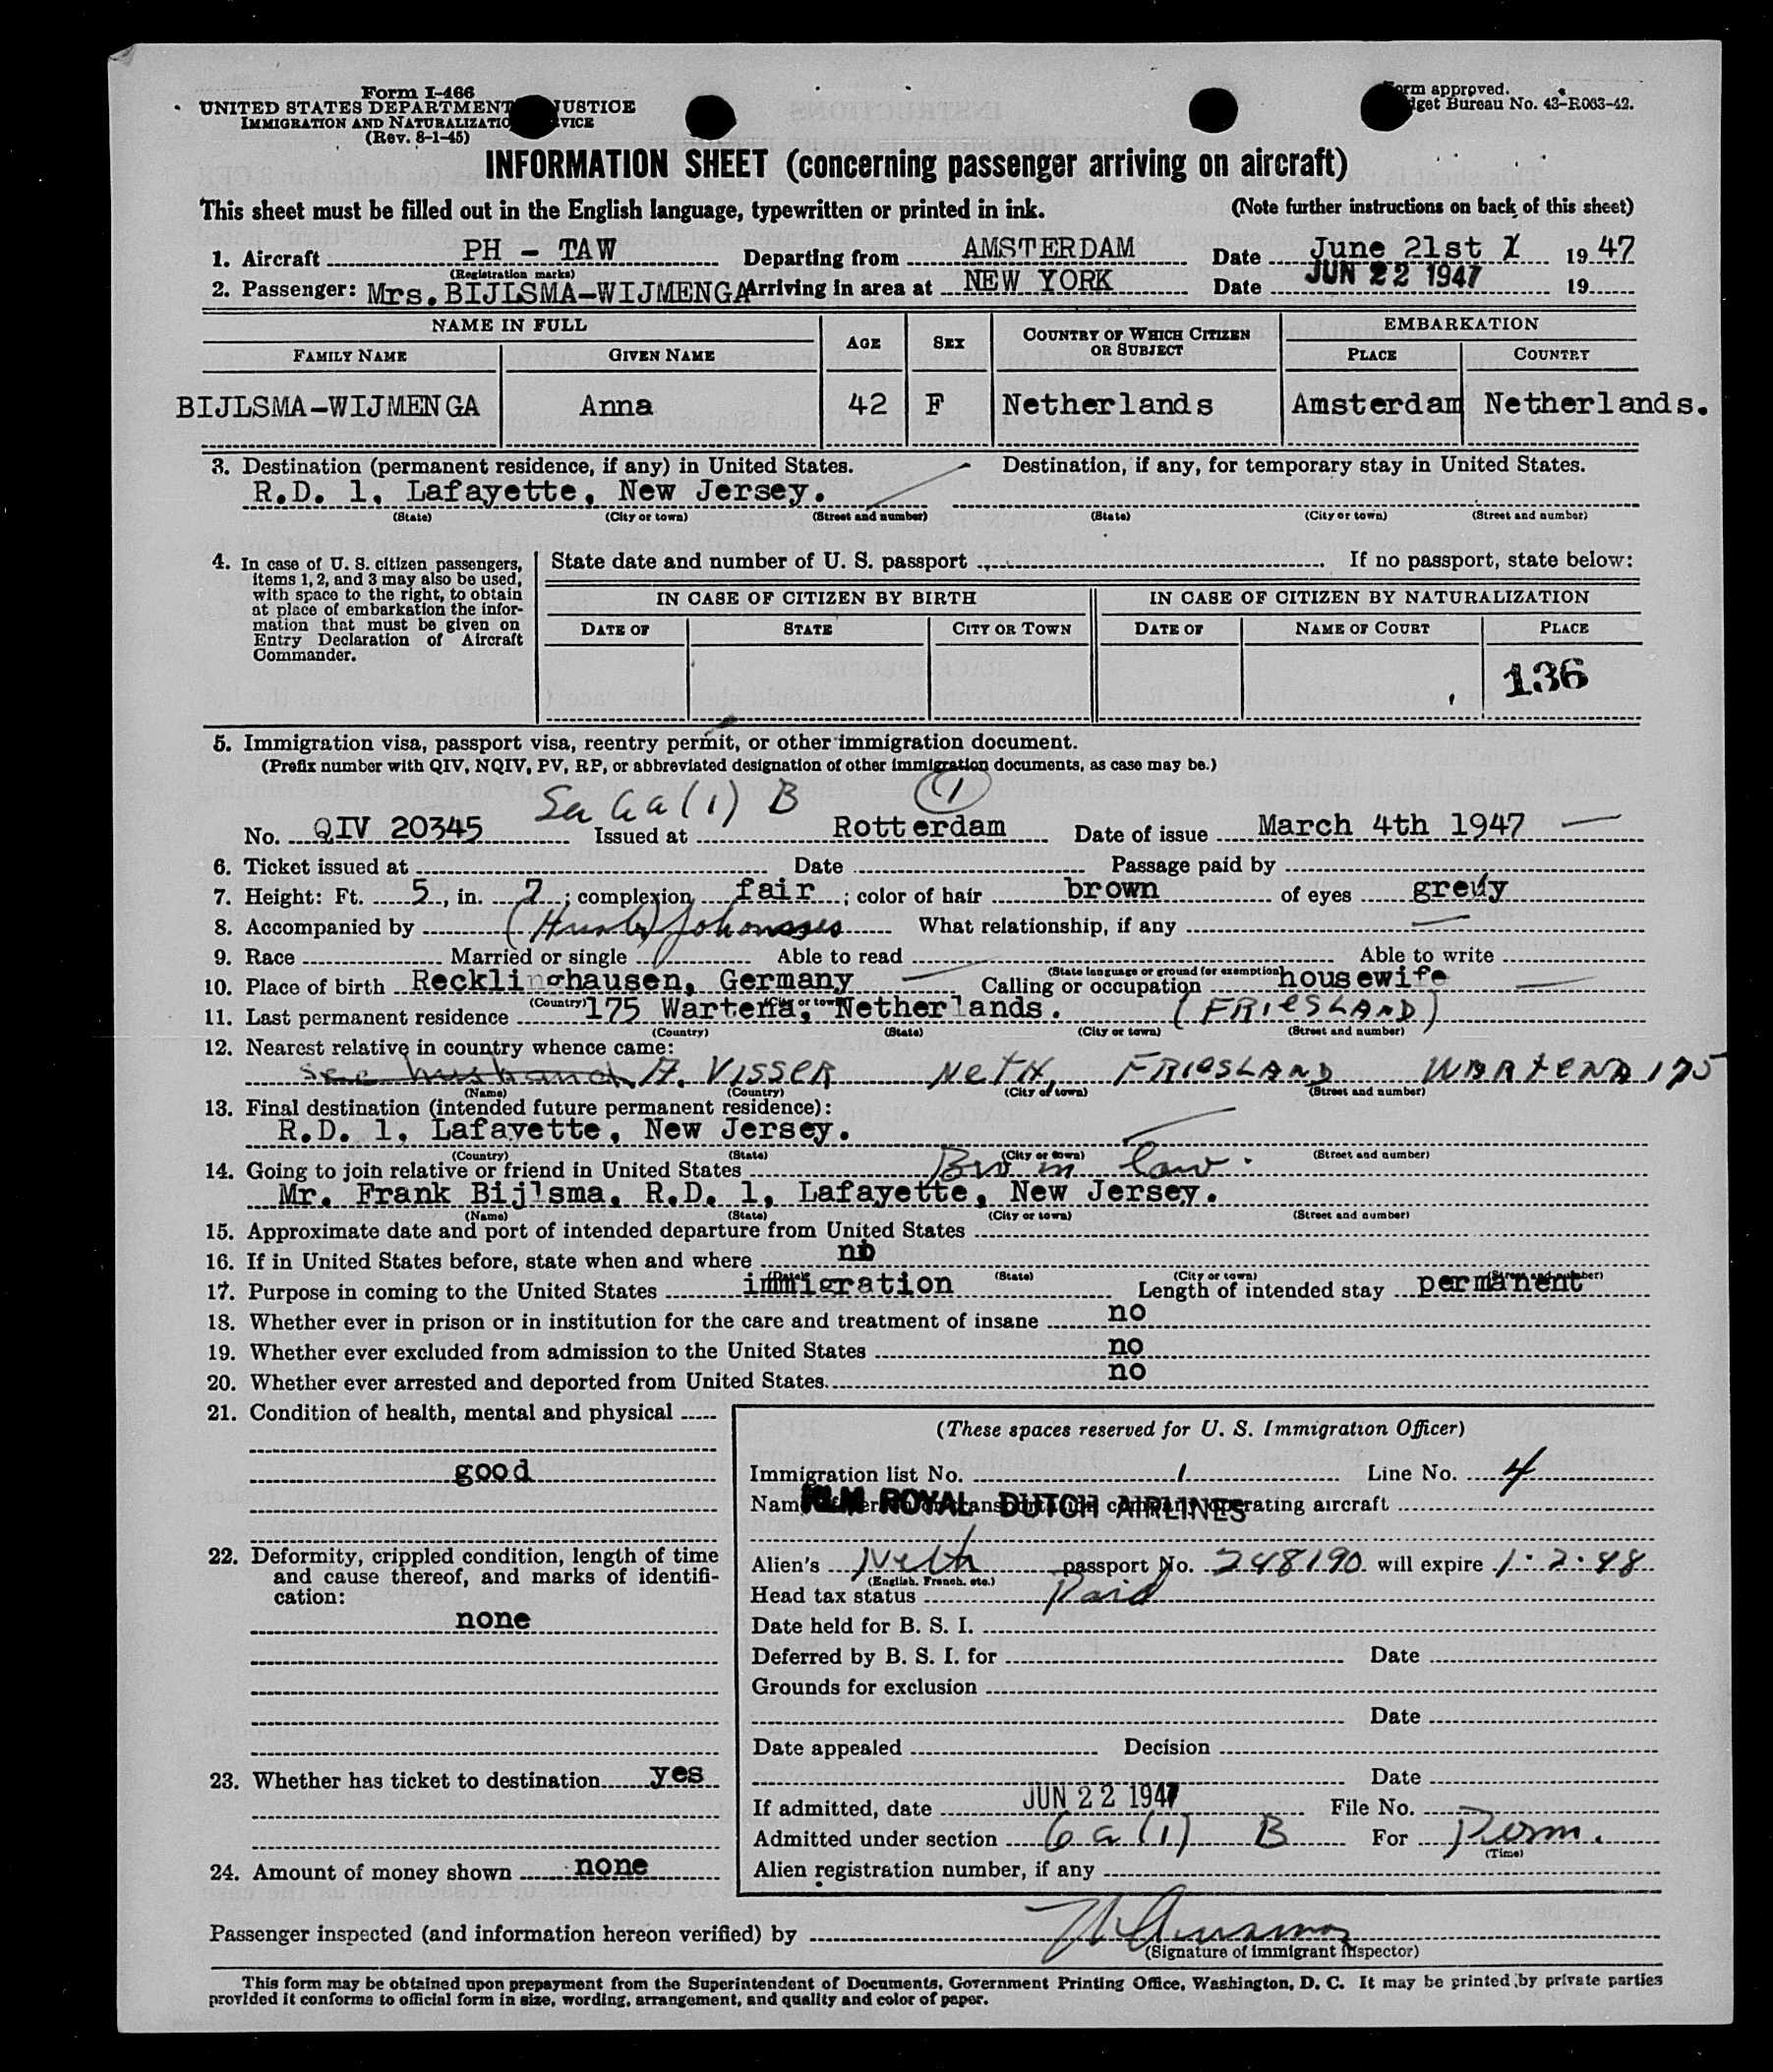 Form I-466
UNITED STATES DEPARTMENT JUSTICE
IMMIGRATION AND NATURALIZATIO VICE
(Rev. 8-1-45)
rm approved.
dget Bureau No. 43-R063-42.
INFORMATION SHEET (concerning passenger arriving on aircraft)
This sheet must be filled out in the English language, typewritten or printed in ink. (Note further instructions on back of this sheet)
1. Aircraft PH - TAW Departing from AMSTERDAM Date June 21st 1947
(Registration marks)
2. Passenger: Mrs. BIJLSMA-WIJMENGA Arriving in area at NEW YORK Date JUN 22 1947 19
NAME IN FULL AGE SEX COUNTRY OF WHICH CITIZEN OR SUBJECT EMBARKATION
FAMILY NAME GIVEN NAME PLACE COUNTRY
BIJLSMA-WIJMENGA Anna 42 F Netherlands Amsterdam Netherlands.
3. Destination (permanent residence, if any) in United States. Destination, if any, for temporary stay in United States.
R.D. 1, Lafayette, New Jersey.
(State) (City or town) (Street and number) (State) (City or town) (Street and number)
4. In case of U. S. citizen passengers, items 1, 2, and 3 may also be used, with space to the right, to obtain at place of embarkation the information that must be given on Entry Declaration of Aircraft Commander.
State date and number of U. S. passport If no passport, state below:
IN CASE OF CITIZEN BY BIRTH IN CASE OF CITIZEN BY NATURALIZATION
DATE OF STATE CITY OR TOWN DATE OF NAME OF COURT PLACE
136
5. Immigration visa, passport visa, reentry permit, or other immigration document.
(Prefix number with QIV, NQIV, PV, RP, or abbreviated designation of other immigration documents, as case may be.)
6a(1) B 1
No. QIV 20345 Issued at Rotterdam Date of issue March 4th 1947
6. Ticket issued at Date Passage paid by
7. Height: Ft. 5, in. 7; complexion fair; color of hair brown of eyes grey
8. Accompanied by (Husb) Johannes What relationship, if any
9. Race Married or single Able to read Able to write
(State language or ground for exemption)
10. Place of birth Recklinghausen, Germany Calling or occupation housewife
(Country) (City or town)
11. Last permanent residence 175 Wartena, Netherlands. (FRIESLAND)
(Country) (State) (City or town) (Street and number)
12. Nearest relative in country whence came:
see husband A. VISSER NETH. FRIESLAND WARTENA 175
(Name) (Country) (City or town) (Street and number)
13. Final destination (intended future permanent residence):
R.D. 1, Lafayette, New Jersey.
(Country) (State) (City or town) (Street and number)
14. Going to join relative or friend in United States Bro in law.
Mr. Frank Bijlsma, R.D. 1, Lafayette, New Jersey.
(Name) (State) (City or town) (Street and number)
15. Approximate date and port of intended departure from United States
16. If in United States before, state when and where no
(State) (City or town) (Street and number)
17. Purpose in coming to the United States immigration Length of intended stay permanent
18. Whether ever in prison or in institution for the care and treatment of insane no
19. Whether ever excluded from admission to the United States no
20. Whether ever arrested and deported from United States. no
21. Condition of health, mental and physical
good
22. Deformity, crippled condition, length of time and cause thereof, and marks of identification:
none
23. Whether has ticket to destination yes
24. Amount of money shown none
(These spaces reserved for U. S. Immigration Officer)
Immigration list No. 1 Line No. 4
Name of person or transportation company operating aircraft
KLM ROYAL DUTCH AIRLINES
Alien's Neth passport No. 248190 will expire 1-2-48
(English, French, etc.)
Head tax status Paid
Date held for B. S. I.
Deferred by B. S. I. for Date
Grounds for exclusion
Date
Date appealed Decision
Date
If admitted, date JUN 22 1947 File No.
Admitted under section 6 a (1) B For Perm.
(Time)
Alien registration number, if any
Passenger inspected (and information hereon verified) by
(Signature of immigrant inspector)
This form may be obtained upon prepayment from the Superintendent of Documents, Government Printing Office, Washington, D. C. It may be printed by private parties
provided it conforms to official form in size, wording, arrangement, and quality and color of paper.